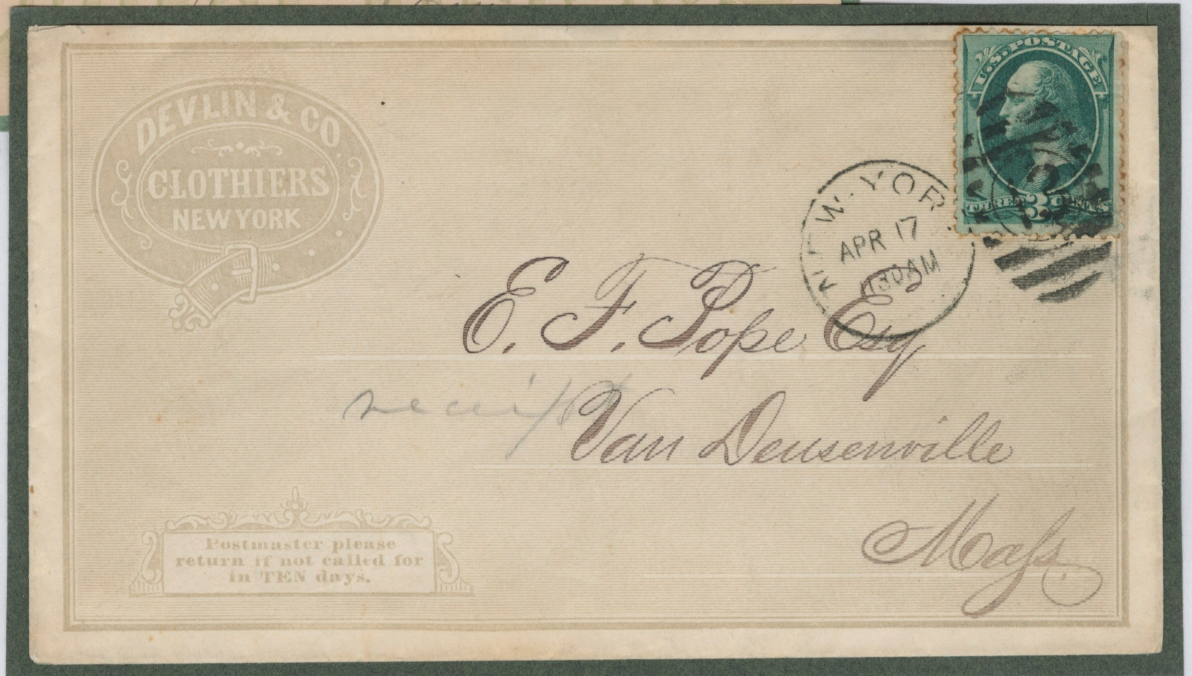 DEVLIN & CO
CLOTHIERS
NEW YORK
U.S. POSTAGE
THREE 3 CENTS
NEW-YORK
APR 17
130AM
E. F. Pope Esq
receipt
Van Deusenville
Mass.
Postmaster please
return if not called for
in TEN days.